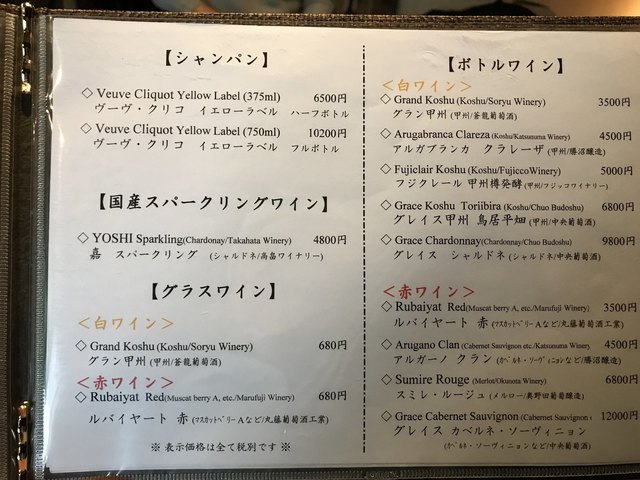 【シャンパン】
◇ Veuve Cliquot Yellow Label (375ml) 6500円
ヴーヴ・クリコ イエローラベル ハーフボトル
◇ Veuve Cliquot Yellow Label (750ml) 10200円
ヴーヴ・クリコ イエローラベル フルボトル
【国産スパークリングワイン】
◇ YOSHI Sparkling(Chardonay/Takahata Winery) 4800円
嘉 スパークリング (シャルドネ/高畠ワイナリー)
【グラスワイン】
<白ワイン>
◇ Grand Koshu (Koshu/Soryu Winery) 680円
グラン甲州 (甲州/蒼龍葡萄酒)
<赤ワイン>
◇ Rubaiyat Red(Muscat berry A, etc./Marufuji Winery) 680円
ルバイヤート 赤 (マスカットベリーAなど/丸藤葡萄酒工業)
※ 表示価格は全て税別です ※
【ボトルワイン】
<白ワイン>
◇ Grand Koshu (Koshu/Soryu Winery) 3500円
グラン甲州 (甲州/蒼龍葡萄酒)
◇ Arugabranca Clareza (Koshu/Katsunuma Winery) 4500円
アルガブランカ クラレーザ (甲州/勝沼醸造)
◇ Fujiclair Koshu (Koshu/FujiccoWinery) 5000円
フジクレール 甲州樽発酵 (甲州/フジッコワイナリー)
◇ Grace Koshu Toriibira (Koshu/Chuo Budoshu) 6800円
グレイス甲州 鳥居平畑 (甲州/中央葡萄酒)
◇ Grace Chardonnay(Chardonnay/Chuo Budoshu) 9800円
グレイス シャルドネ (シャルドネ/中央葡萄酒)
<赤ワイン>
◇ Rubaiyat Red(Muscat berry A, etc./Marufuji Winery) 3500円
ルバイヤート 赤 (マスカットベリーAなど/丸藤葡萄酒工業)
◇ Arugano Clan (Cabernet Sauvignon etc./Katsunuma Winery 4500円
アルガーノ クラン (カベルネ・ソーヴィニョンなど/勝沼醸造)
◇ Sumire Rouge (Merlot/Okunota Winery) 6800円
スミレ・ルージュ (メルロー/奥野田葡萄醸造)
◇ Grace Cabernet Sauvignon (Cabernet Sauvignon 12000円
グレイス カベルネ・ソーヴィニョン
(カベルネ・ソーヴィニョンなど/中央葡萄酒)